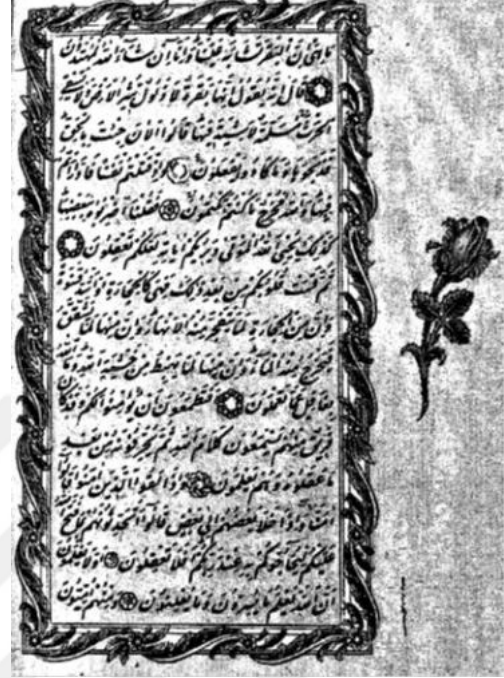 ما هي إن البقر تشابه علينا وإنا إن شاء الله لمهتدون
قال إنه يقول إنها بقرة لا ذلول تثير الأرض ولا تسقي
الحرث مسلمة لا شية فيها قالوا الآن جئت بالحق
فذبحوها وما كادوا يفعلون وإذ قتلتم نفسا فادارأتم
فيها والله مخرج ما كنتم تكتمون فقلنا اضربوه ببعضها
كذلك يحيي الله الموتى ويريكم آياته لعلكم تعقلون
ثم قست قلوبكم من بعد ذلك فهي كالحجارة أو أشد قسوة
وإن من الحجارة لما يتفجر منه الأنهار وإن منها لما يشقق
فيخرج منه الماء وإن منها لما يهبط من خشية الله وما الله
بغافل عما تعملون أفتطمعون أن يؤمنوا لكم وقد كان
فريق منهم يسمعون كلام الله ثم يحرفونه من بعد
ما عقلوه وهم يعلمون وإذا لقوا الذين آمنوا قالوا
آمنا وإذا خلا بعضهم إلى بعض قالوا أتحدثونهم بما فتح الله
عليكم ليحاجوكم به عند ربكم أفلا تعقلون أولا يعلمون
أن الله يعلم ما يسرون وما يعلنون ومنهم أميون